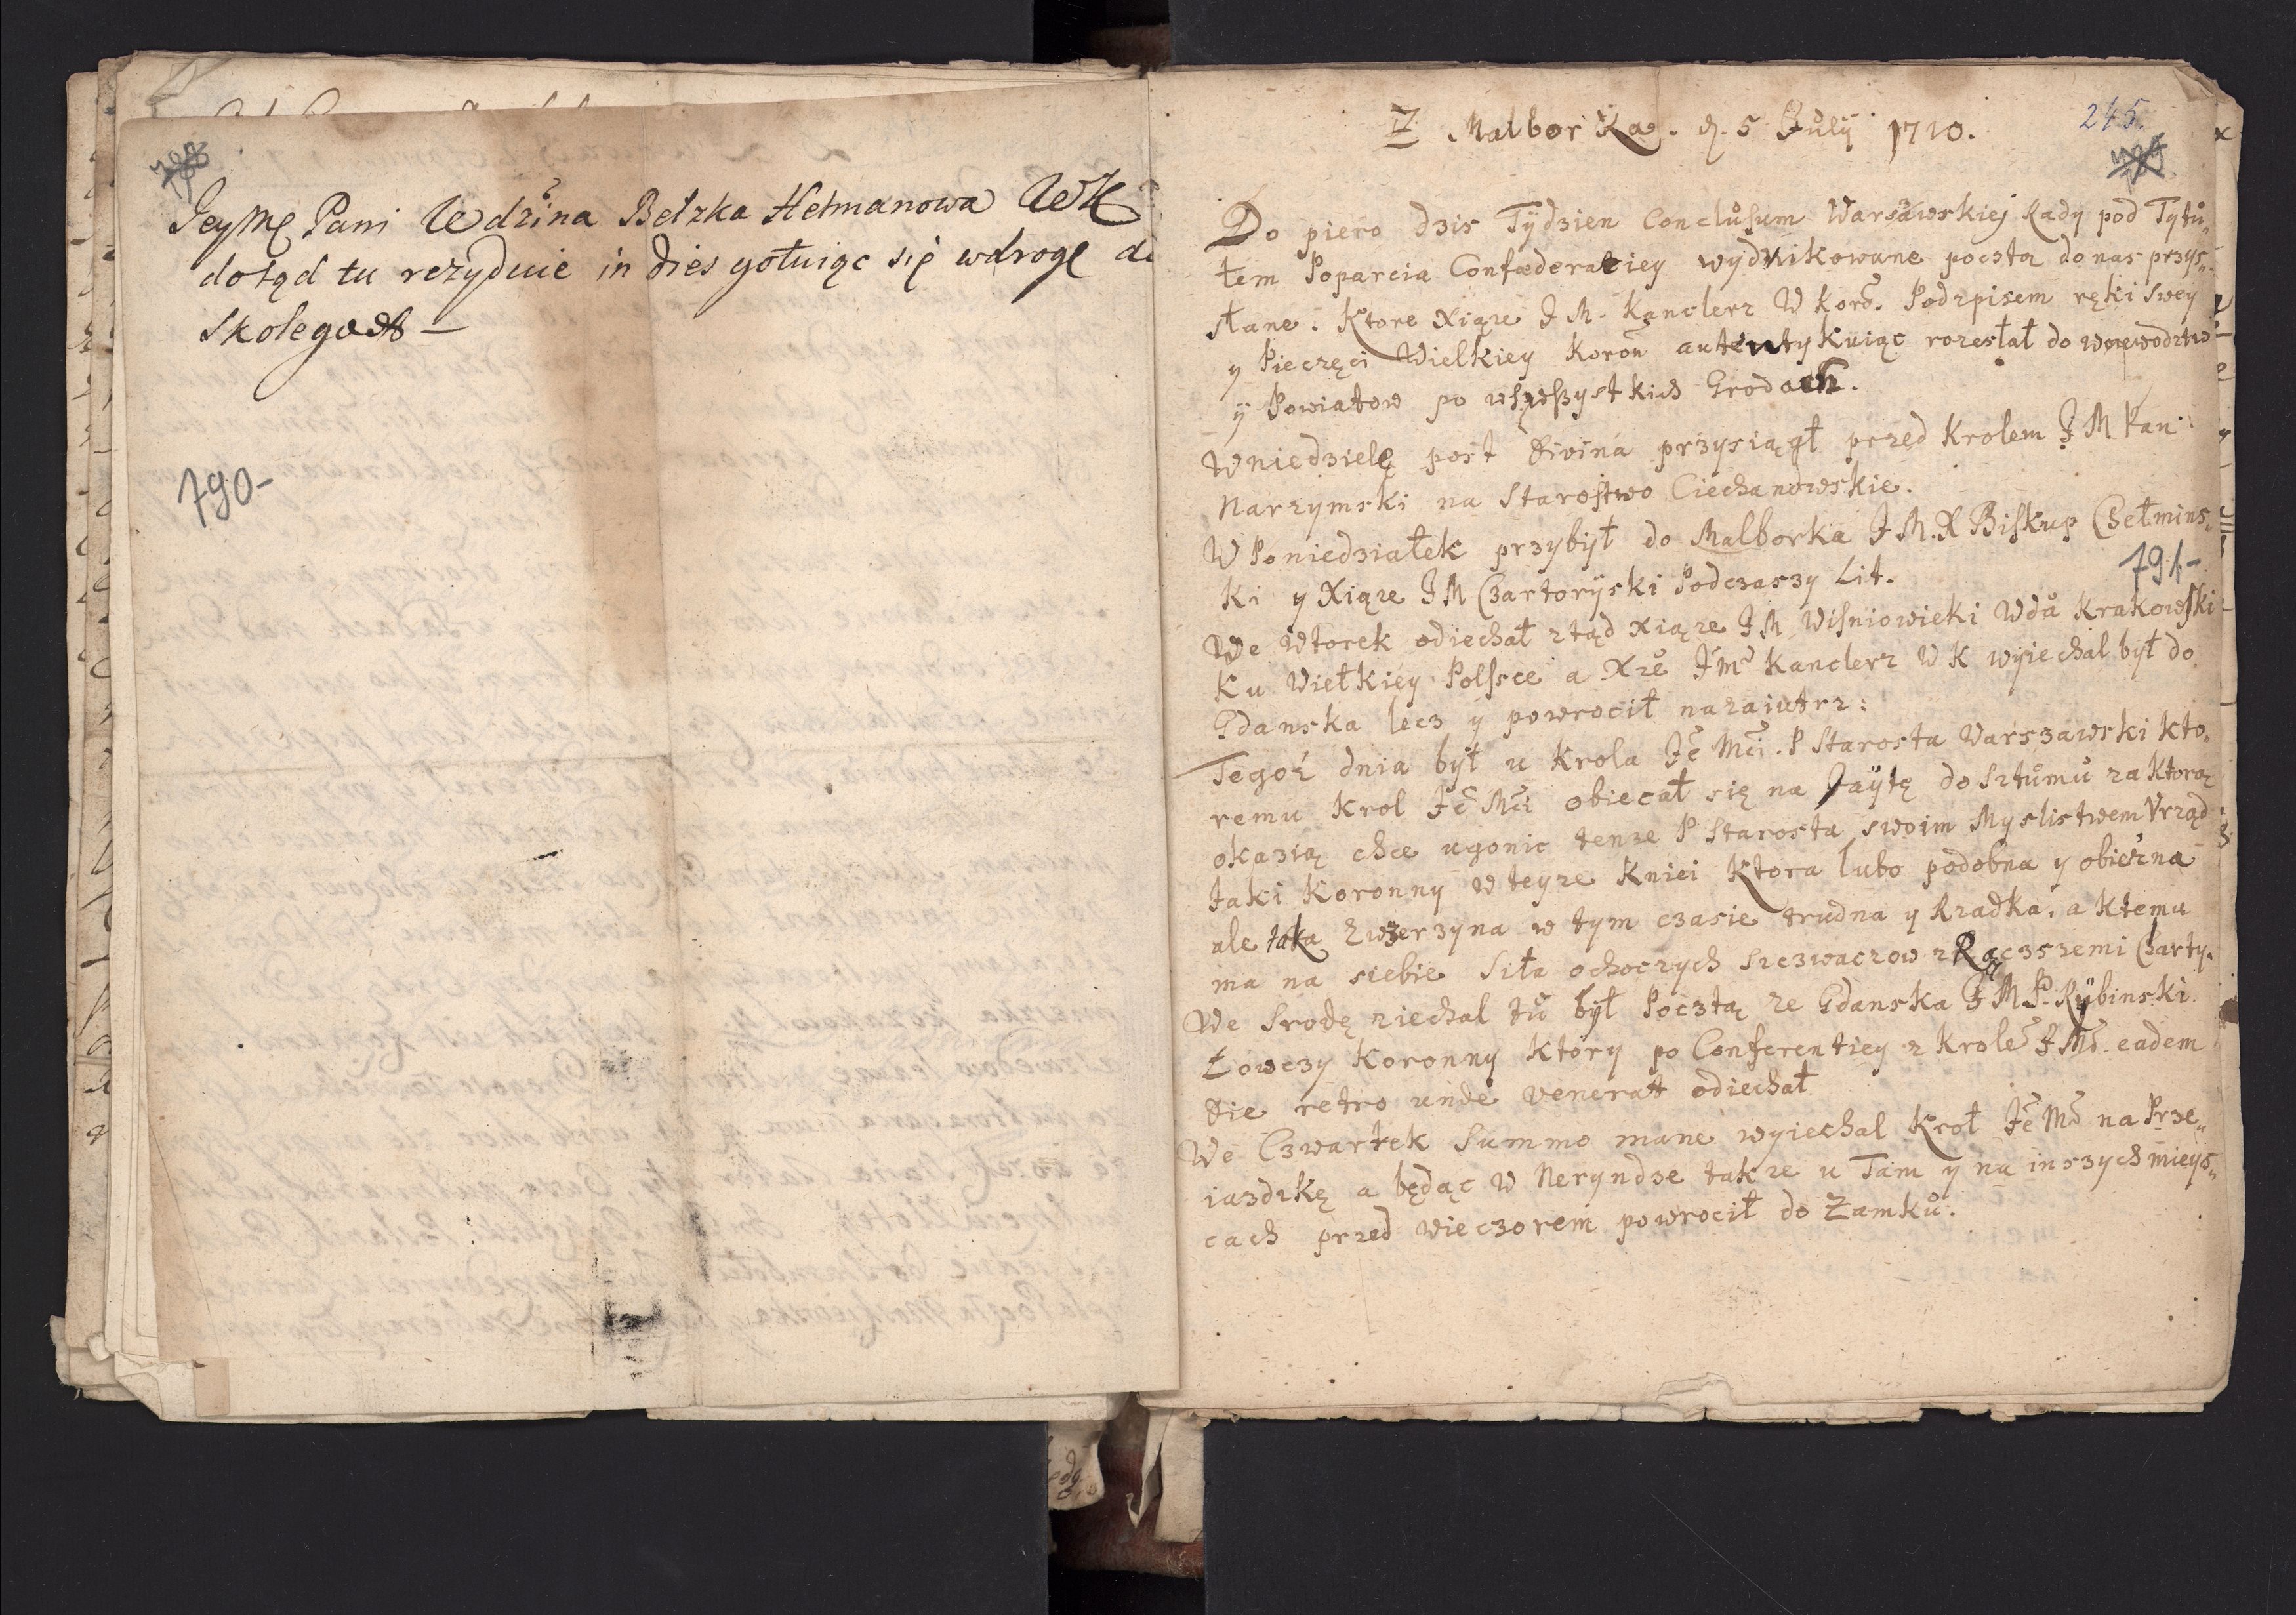 JeyMę Pani Wdzina Bełzka Hetmanowa WK
dotąd tu rezyduie in dies gotuiąc się wdrogę do
Skolego
790-
Z Malborka. d. 5 Julÿ 1710.
245.
Do piero dzis Tÿdzien Conclusum Warsawskiej Rady pod Tytu„
łem Poparcia Confæderatiey wydrukowane poczta do nas przys„
łane. Ktore Xiąze J M. Kanclerz W Kor. Podzpisem ręki swey
y Pieczęci Wielkiey Koron autentykuiąc rozesłał do woiewodztw
ÿ Powiatow po wszystkich Grodach.
W niedzielę post Divina przysiągł przed Krolem J M Pan
Narzymski na Starostwo Ciechanowskie.
W Poniedziałek przybył do Malborka J M. X Biskup Chełmins„
ki y Xiąze J M Czartorÿski Podczaszy Lit.
791-
We Wtorek odiechał ztąd Xiąze J M Wisniowieki Wda Krakowski
Ku Wielkiey Polsce a Xze Jm Kanclerz W K wyiechal był do
Gdanska lecz y powrocił nazaiutrz:
Tegoż dnia był u Krola Je Mci. P Starosta Warszawski kto„
remu Krol Je Mci obiecał się na Jaÿtę do Sztumu za ktorą
okazią chce ugonic tenze P Starosta swoim Myslistwem Vrząd
taki Koronny w teyze Kniei Ktora lubo podobna y obieżna
ale taka Zwierzyna w tym czasie trudna y Rzadka. a ktemu
ma na siebie siła ochoczych szczwaczow z Rączszemi Charty.
We Srodę ziechal tu był Pocztą ze Gdanska J M P. Rÿbinski
Łowczy Koronny ktory po Conferentiey z Krole J M. eadem
die retro unde venerat odiechał
We Czwartek Summo mane wyiechal Kroł Je M na Prze„
iazdzkę a będąc w Neryndze takze u Tam y na inszych mieys„
cach przed wieczorem powrocił do Zamku.